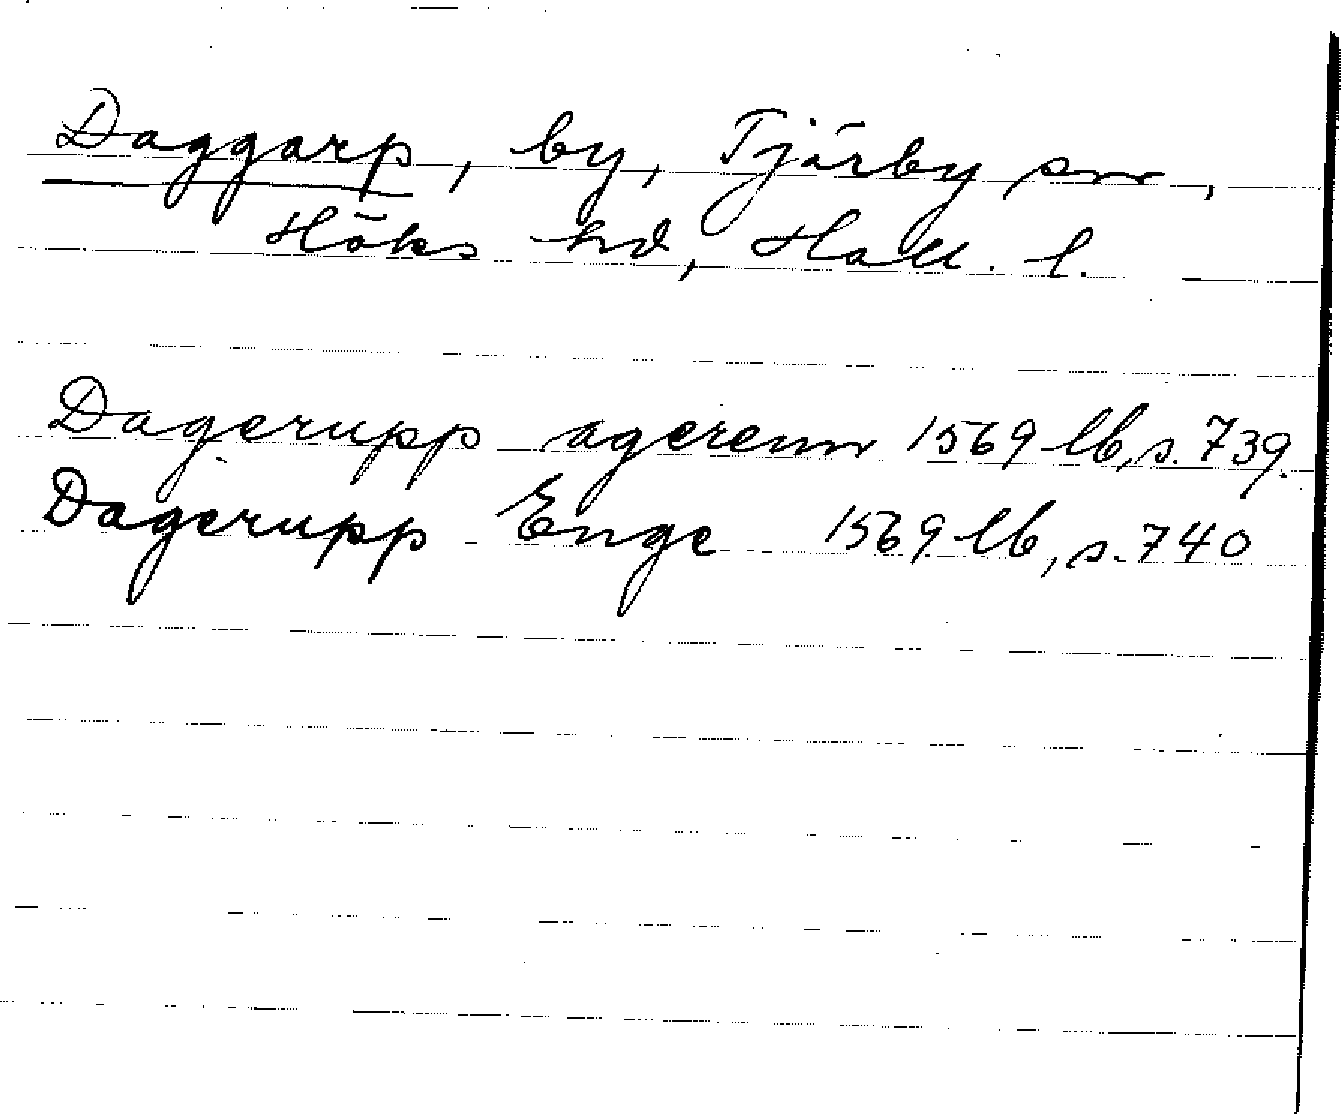 Daggarp, by, Tjärby sn,
Höks hd, Hall. l.
Dagerupp agerenn 1569 lb, s. 739.
Dagerupp Enge 1569 lb, s. 740